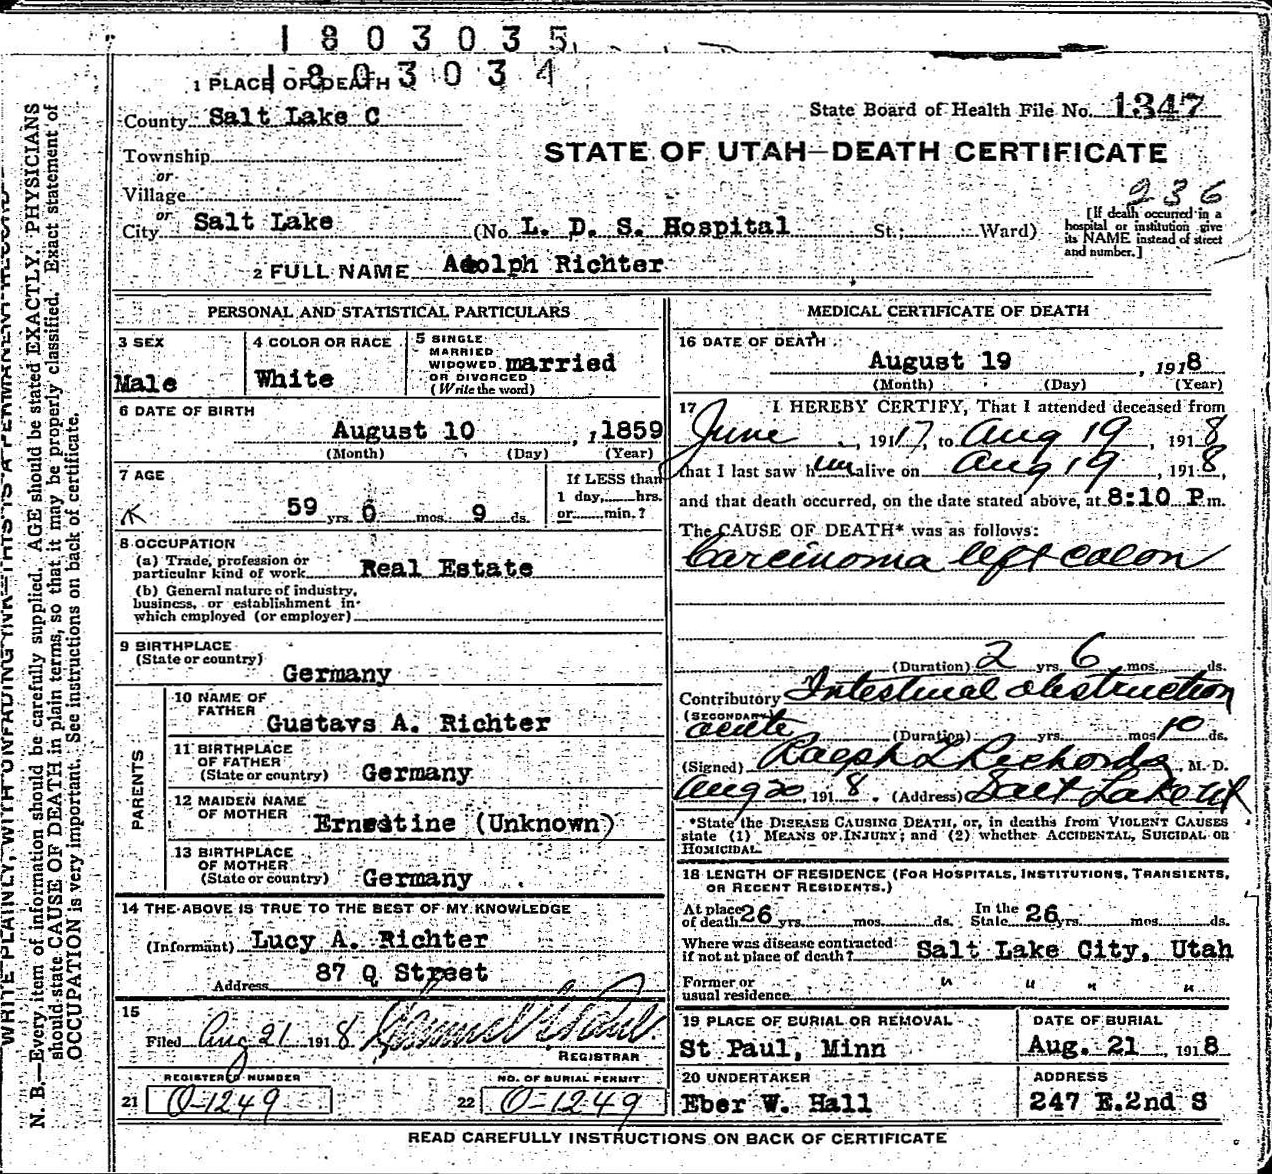 1803035
1803034
1 PLACE OF DEATH
County Salt Lake C
State Board of Health File No. 1347
Township
or
Village
or
City Salt Lake (No. L. D. S. Hospital St.; Ward)
STATE OF UTAH—DEATH CERTIFICATE
236
[If death occurred in a
hospital or institution give
its NAME instead of street
and number.]
2 FULL NAME Adolph Richter
PERSONAL AND STATISTICAL PARTICULARS
3 SEX
Male
4 COLOR OR RACE
White
5 SINGLE
MARRIED
WIDOWED
OR DIVORCED
(Write the word)
married
6 DATE OF BIRTH
August 10, 1859
(Month) (Day) (Year)
7 AGE
59 yrs. 0 mos. 9 ds.
If LESS than
1 day, hrs.
or min.?
8 OCCUPATION
(a) Trade, profession or
particular kind of work Real Estate
(b) General nature of industry,
business, or establishment in
which employed (or employer)
9 BIRTHPLACE
(State or country)
Germany
PARENTS
10 NAME OF
FATHER
Gustavs A. Richter
11 BIRTHPLACE
OF FATHER
(State or country) Germany
12 MAIDEN NAME
OF MOTHER
Ernestine (Unknown)
13 BIRTHPLACE
OF MOTHER
(State or country) Germany
14 THE ABOVE IS TRUE TO THE BEST OF MY KNOWLEDGE
(Informant) Lucy A. Richter
87 Q Street
Address
15
Filed Aug 21 1918
REGISTRAR
REGISTERED NUMBER
21 O-1249
NO. OF BURIAL PERMIT
22 O-1249
MEDICAL CERTIFICATE OF DEATH
16 DATE OF DEATH
August 19, 1918
(Month) (Day) (Year)
17 I HEREBY CERTIFY, That I attended deceased from
June, 1917, to Aug 19, 1918
that I last saw him alive on Aug 19, 1918,
and that death occurred, on the date stated above, at 8:10 P.m.
The CAUSE OF DEATH* was as follows:
Carcinoma left colon
(Duration) 2 yrs. 6 mos. ds.
Contributory Intestinal obstruction
(SECONDARY)
acute (Duration) yrs. mos. 10 ds.
(Signed) Ralph T Richards, M. D.
Aug 20, 1918. (Address) Salt Lake Ut
*State the DISEASE CAUSING DEATH, or, in deaths from VIOLENT CAUSES
state (1) MEANS OF INJURY; and (2) whether ACCIDENTAL, SUICIDAL OR
HOMICIDAL.
18 LENGTH OF RESIDENCE (FOR HOSPITALS, INSTITUTIONS, TRANSIENTS,
OR RECENT RESIDENTS.)
At place
of death 26 yrs. mos. ds. In the
State 26 yrs. mos. ds.
Where was disease contracted
if not at place of death? Salt Lake City, Utah
Former or
usual residence " " " "
19 PLACE OF BURIAL OR REMOVAL
St Paul, Minn
DATE OF BURIAL
Aug. 21, 1918
20 UNDERTAKER
Eber W. Hall
ADDRESS
247 E.2nd S
READ CAREFULLY INSTRUCTIONS ON BACK OF CERTIFICATE
WRITE PLAINLY, WITH UNFADING INK—THIS IS A PERMANENT RECORD
N. B.—Every item of information should be carefully supplied. AGE should be stated EXACTLY. PHYSICIANS
should state CAUSE OF DEATH in plain terms, so that it may be properly classified. Exact statement of
OCCUPATION is very important. See instructions on back of certificate.